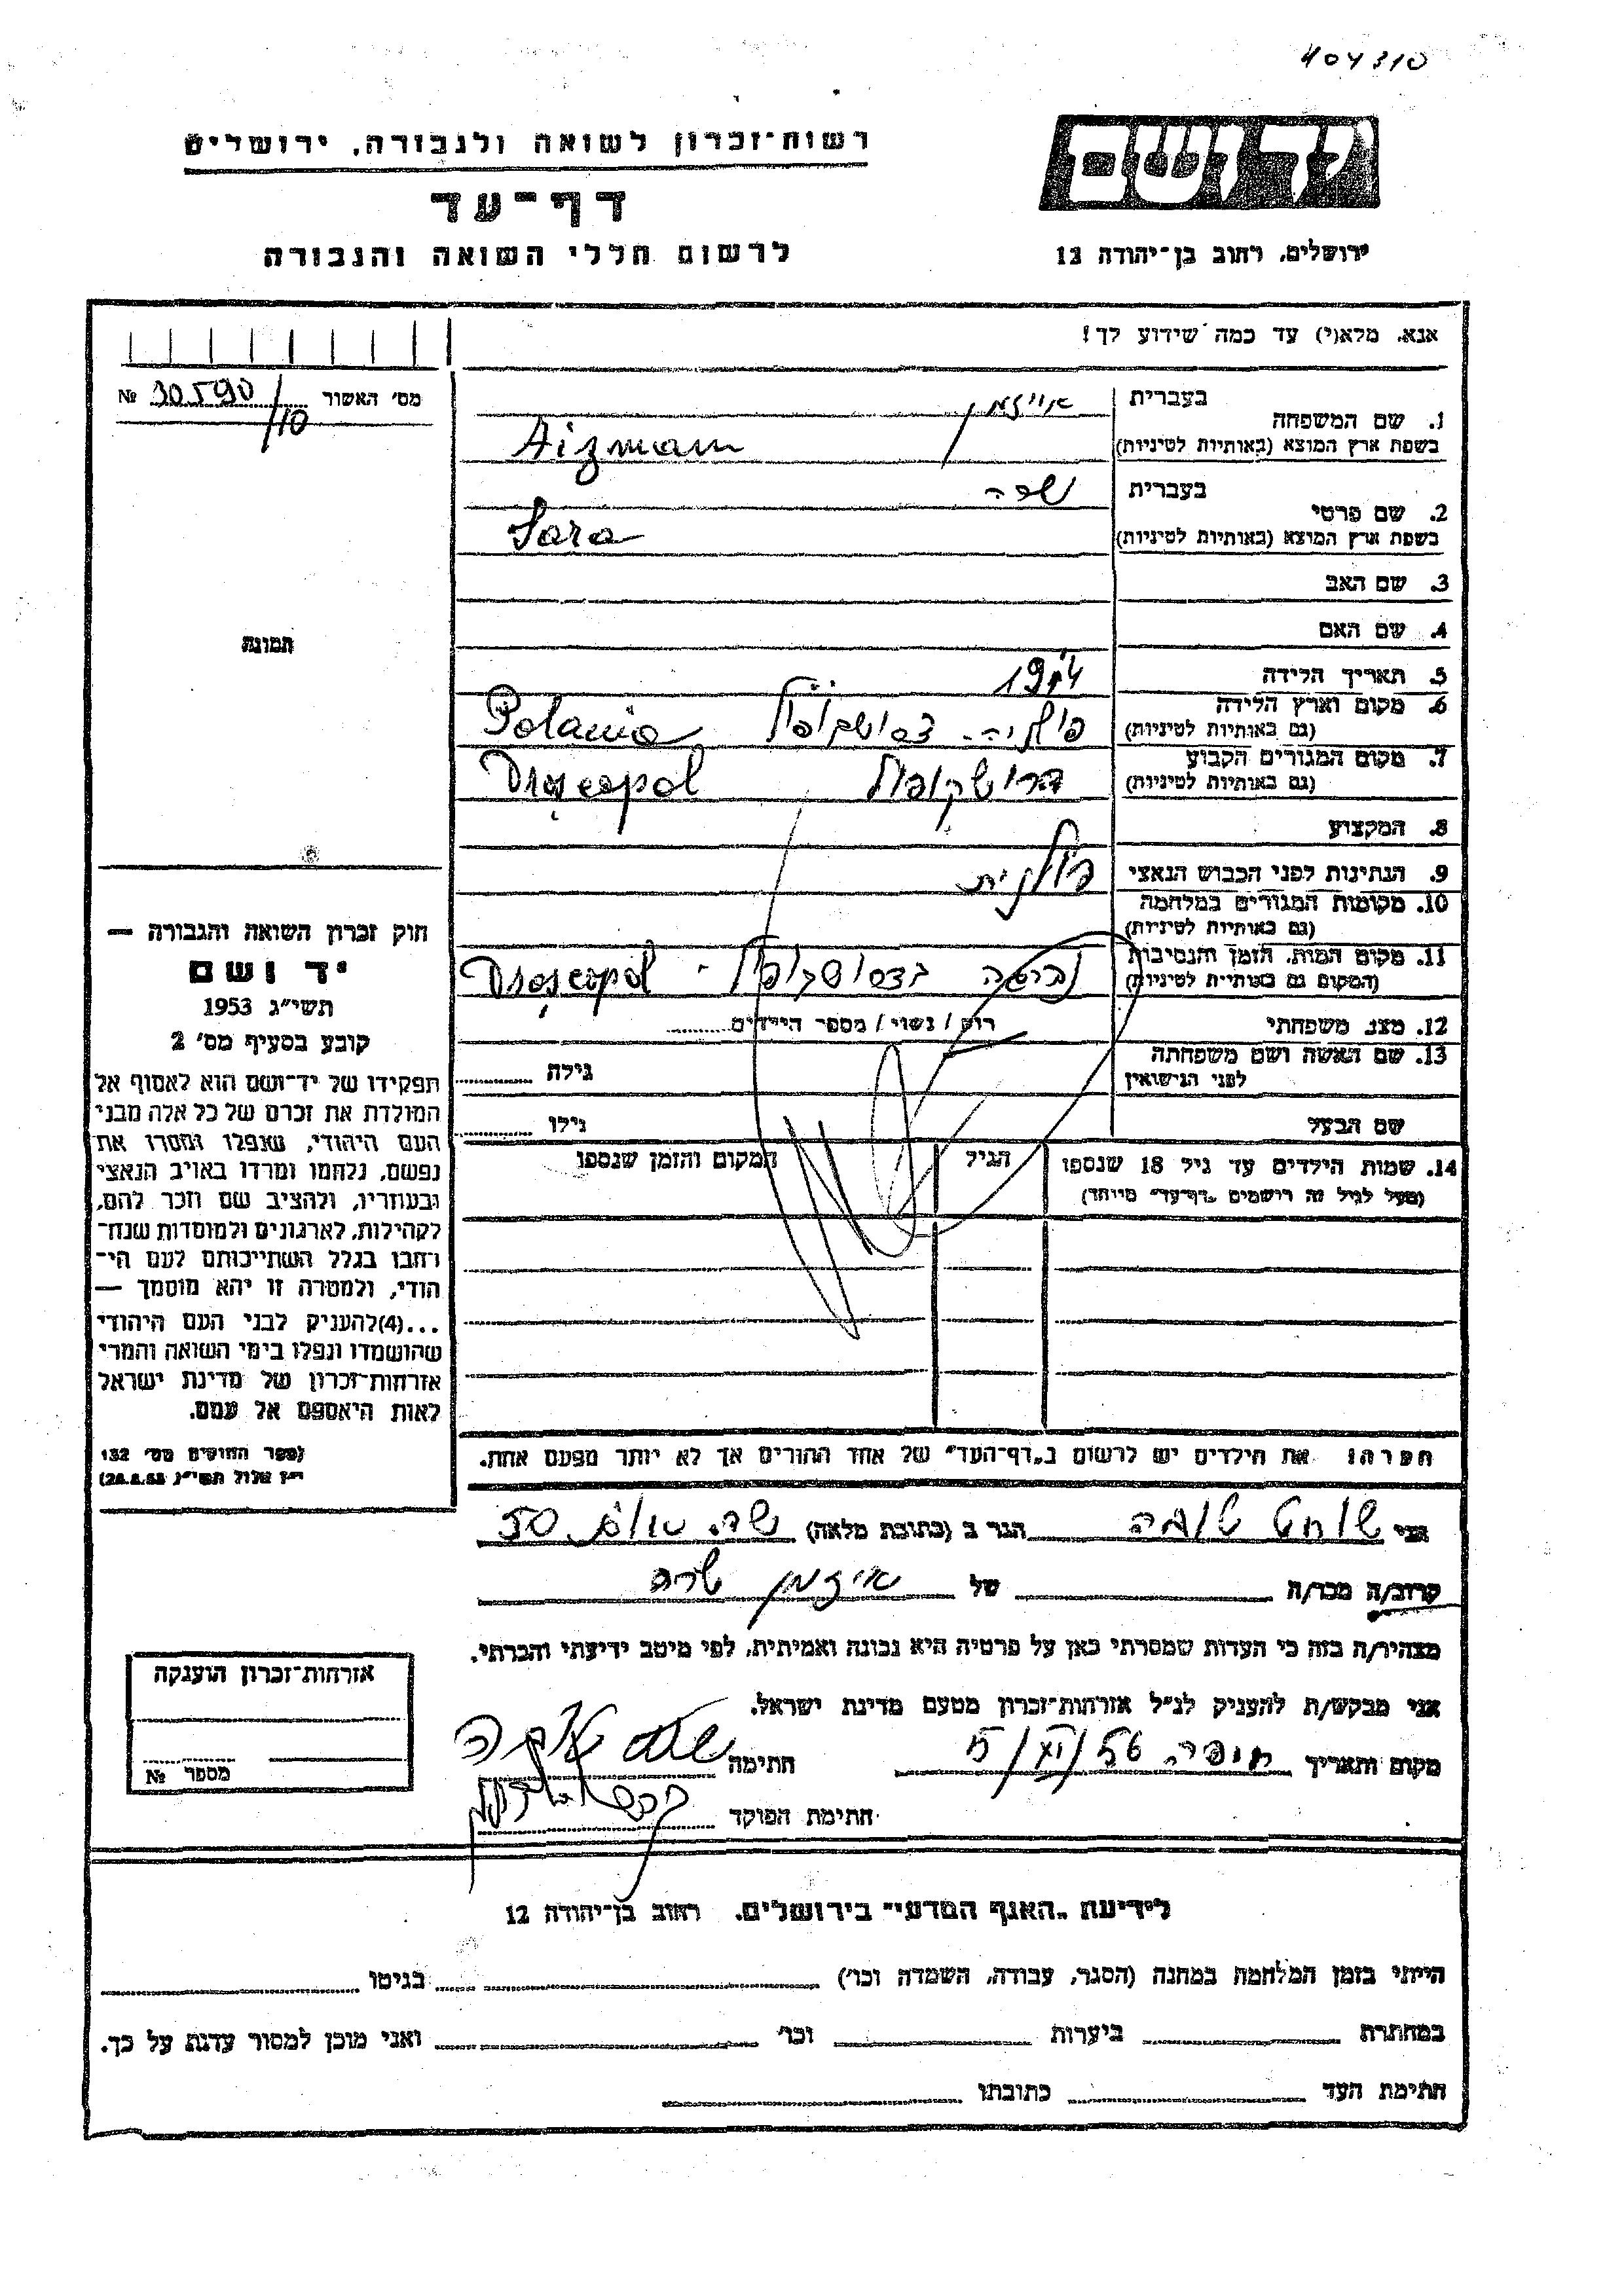 404310
יד ושם
רשות-זכרון לשואה ולגבורה, ירושלים
דף-עד
ירושלים, רחוב בן-יהודה 12
לרשום חללי השואה והגבורה
אנא, מלא(י) עד כמה שידוע לך!
מס' האשור 30590/10 №
1. שם המשפחה
בעברית אייזמן
בשפת ארץ המוצא (באותיות לטיניות) Aizmam
2. שם פרטי
בעברית שרה
בשפת ארץ המוצא (באותיות לטיניות) Sara
3. שם האב
4. שם האם
תמונה
5. תאריך הלידה
6. מקום וארץ הלידה
(גם באותיות לטיניות) פולניה- Polania
7. מקום המגורים הקבוע
(גם באותיות לטיניות) דרושקופול Droscopol
8. המקצוע
9. הנתינות לפני הכבוש הנאצי פולנית
10. מקומות המגורים במלחמה
(גם באותיות לטיניות)
11. מקום המות, הזמן והנסיבות
(המקום גם באותיות לטיניות) Droscopol
12. מצב משפחתי רווק / נשוי / מספר הילדים
13. שם האשה ושם משפחתה
לפני הנישואין גילה
שם הבעל גילו
14. שמות הילדים עד גיל 18 שנספו הגיל המקום והזמן שנספו
(מעל לגיל זה רישמים "דף-עד" מיוחד)
חוק זכרון השואה והגבורה —
יד ושם
תשי"ג 1953
קובע בסעיף מס' 2
תפקידו של יד-ושם הוא לאסוף אל
המולדת את זכרם של כל אלה מבני
העם היהודי, שנפלו ומסרו את
נפשם, נלחמו ומרדו באויב הנאצי
ובעוזריו, ולהציב שם וזכר להם,
לקהילות, לארגונים ולמוסדות שנח-
רחבו בגלל השתייכותם לעם הי-
הודי, ולמטרה זו יהא מוסמך —
...(4)להעניק לבני העם היהודי
שהושמדו ונפלו בימי השואה והמרי
אזרחות-זכרון של מדינת ישראל
לאות היאספם אל עמם.
(ספר החוקים מס' 132
י"ז אלול תשי"ג 28.8.53)
הערה: את הילדים יש לרשום ב"דף-העד" של אחד ההורים אך לא יותר מפעם אחת.
אני הגר ב (כתובת מלאה)
קרוב/ה מכר/ה של איזמן שרה
מצהיר/ה בזה כי העדות שמסרתי כאן על פרטיה היא נכונה ואמיתית, לפי מיטב ידיעתי והכרתי.
אני מבקש/ת להעניק לנ"ל אזרחות-זכרון מטעם מדינת ישראל.
מקום ותאריך חיפה חתימה
חתימת הפוקד
אזרחות-זכרון הוענקה
מספר №
לידיעת "האגף המדעי" בירושלים, רחוב בן-יהודה 12
הייתי בזמן המלחמה במחנה (הסגר, עבודה, השמדה וכו') בגיטו
במחתרת ביערות וכו' ואני מוכן למסור עדות על כך.
חתימת העד כתובתו